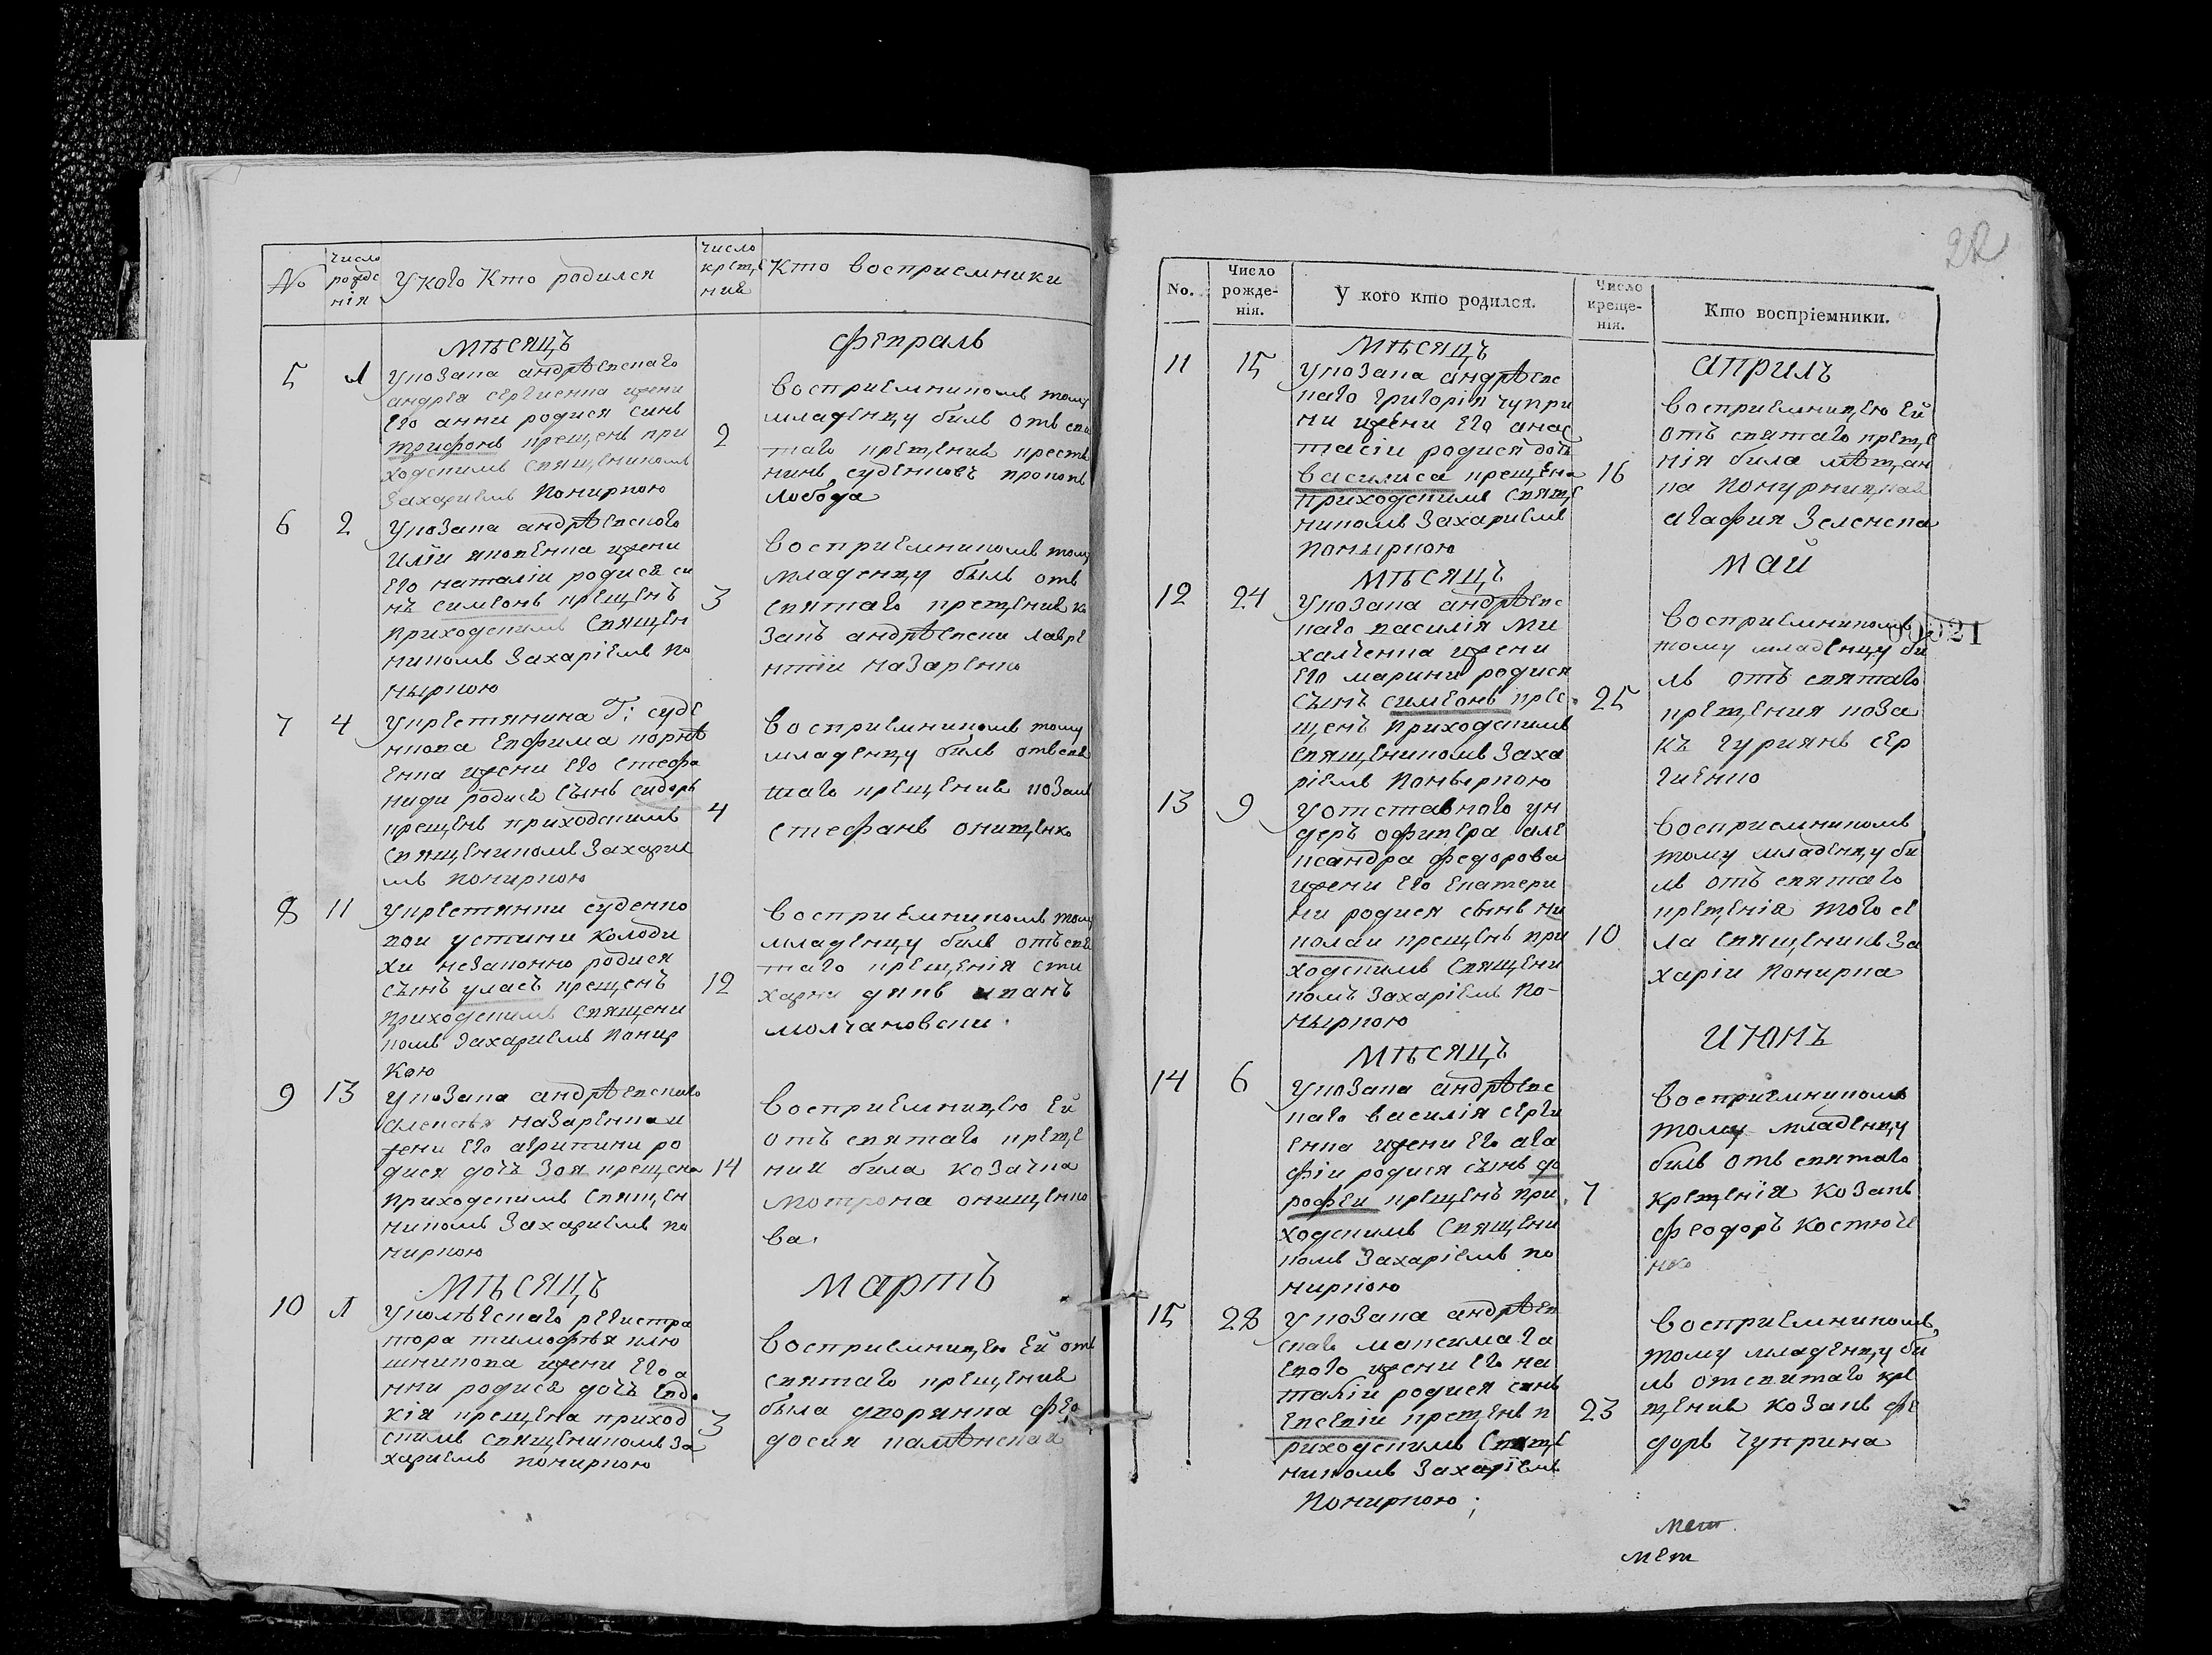 №
Число
рожде
нія
У кого Кто родился
Число
крещ̃е
ния
Кто восприемники
Мѣсяцъ
Февраль
5
1
У козака андрѣевскаго
андрея сергиенка жени
его анни родися синъ
трифонъ крещенъ при
ходскимъ священикомъ
Захариемъ Кониркою
2
Восприемникомъ тому
младенцу билъ отъ свя
таго крещения крестя
нинъ суденковъ прокопъ
лобода
6
2
У козака андрѣевского
илїи яковенка жени
его наталіи родися си
нъ симеонъ крещенъ
приходскимъ священ
никомъ Захаріемъ Ко
ныркою
3
Восприемникомъ тому
младенцу былъ отъ
святаго крещения ко
закъ андрѣевски лавре
нтїи назаренко
7
4
У крестянина Г: суде
нкова евфима корнѣ
енка жени его стефа
ниди родися сынъ сидоръ
крещенъ приходскимъ
священикомъ Захарие
мъ Кониркою
4
Восприемникомъ тому
младенцу билъ отъ свя
таго крещения козакъ
стефанъ онищенко
8
11
У крестянки суденко
вои устини колоди
хи незаконно родися
сынъ уласъ крещенъ
приходскимъ священи
комъ Захариемъ Конир
кою
12
Восприемникомъ тому
младенцу билъ отъ свя
таго крещенія сти
харни дякъ иванъ
молчановски.
9
13
У козака андрѣевскаго
алексѣя назаренка ж
ени его агрипини ро
дися дочъ Зоя крещена
приходскимъ священ
никомъ Захариемъ ко
ниркою
14
Восприемницею ей
отъ святаго креще
ния била козачка
мотрона онищенко
ва.
Мѣсяцъ
Мартъ
10
1
У колѣгскаго регистра
тора тимофѣя клю
шникова жени его а
нни родися дочъ евдо
кія крещена приход
скимъ священикомъ За
хариемъ конкиркою
3
Восприемницею ей отъ
святаго крещения
была дворянка фео
досия калѣнская
22
No.
Число
рожде-
нія.
У кого кто родился.
Число
креще-
нія.
Кто воспріемники.
Мѣсяцъ
априлъ
11
15
У козака андрѣевс
каго григорія чупри
ни жени его анас
тасіи родися дочъ
василиса крещена
приходскимъ свяще
никомъ Захариемъ
Коныркою
16
Восприемницею ей
отъ святаго креще
нія била мѣщан
ка Конурницкая
агафия Зеленска
Мѣсяцъ
май
12
24
У козака андрѣевс
каго василія ми
халченка жени
его марини родися
сынъ симеонъ кре-
щенъ приходскимъ
священикомъ Заха
ріемъ Коныркою
25
Восприемникомъ
тому младенцу би
лъ отъ святаго
крещения коза
къ гуриянъ сер
гиенко
00021
13
9
У отставного ун
деръ офицера але
ксандра федорова
жени его екатери
ни родися сынъ ни
колаи крещенъ при
ходскимъ священи
комъ Захаріемъ Ко-
ныркою
10
Восприемникомъ
тому младенцу би
лъ отъ святаго
крещенія того се
ла священикъ За
харіи Конирка
Мѣсяцъ
Июнъ
14
6
У козака андрѣевс
каго василія серги
енка жени его ага
фіи родися сынъ до
рофеи крещенъ при
ходскимъ священи
комъ Захаріемъ ко
ниркою
7
Восприемникомъ
тому младенцу
билъ отъ святаго
крещенія козакъ
феодоръ костюче
нко
15
28
У козака андрѣев
скаго максима га
евого жени его на
талїи родися синъ
евсевіи крещенъ п
риходскимъ свяще
никомъ Захаріемъ
Конкиркою;
23
Восприемникомъ
тому младенцу би
лъ отсвятаго кре
щения козакъ фе
доръ чуприна
мет
мет